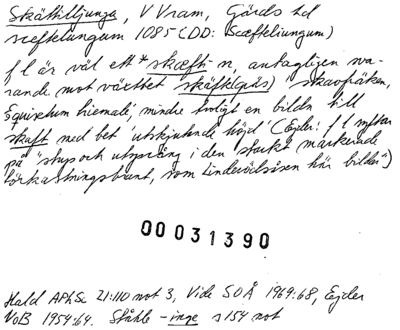 Skättilljunga, V Vram, Gärds hd
scefteliungum 1085 (DD: Scæfteliungum)
f l är väl ett *skæfti-n, antagligen sva-
rande mot växtet skäfte(gräs) 'skavfräken,
Equisetum hiemale', mindre troligt en bildn till
skaft med bet 'utskjutande höjd' (Ejder: f l syftar
på "stup och utsprång i den starkt markerade
förkastningsbrant, som Linderödsåsen här bildar")
00031390
Hald APhSc 21:110 not 3, Vide SOÅ 1969:68, Ejder
VoB 1954:64. Ståhle -inge s 154 not